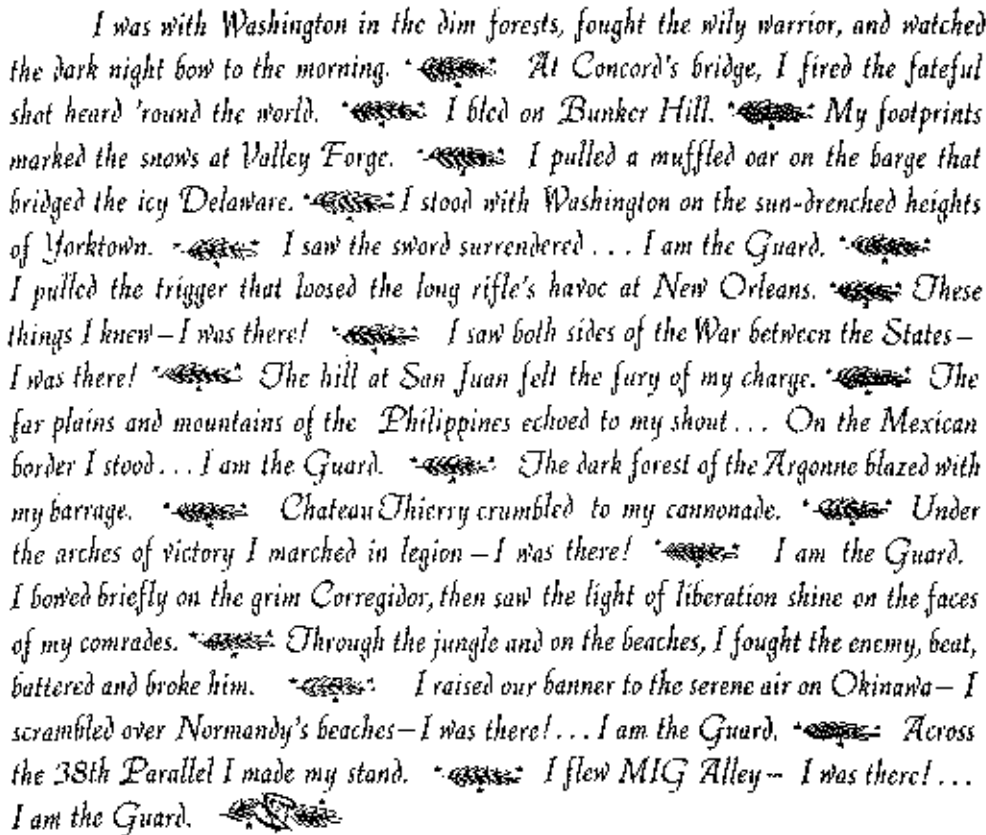 I was with Washington in the dim forests, fought the wily warrior, and watched
the dark night bow to the morning. At Concord's bridge, I fired the fateful
shot heard 'round the world. I bled on Bunker Hill. My footprints
marked the snows at Valley Forge. I pulled a muffled oar on the barge that
bridged the icy Delaware. I stood with Washington on the sun-drenched heights
of Yorktown. I saw the sword surrendered ... I am the Guard.
I pulled the trigger that loosed the long rifle's havoc at New Orleans. These
things I knew—I was there! I saw both sides of the War between the States—
I was there! The hill at San Juan felt the fury of my charge. The
far plains and mountains of the Philippines echoed to my shout ... On the Mexican
border I stood ... I am the Guard. The dark forest of the Argonne blazed with
my barrage. Chateau Thierry crumbled to my cannonade. Under
the arches of victory I marched in legion—I was there! I am the Guard.
I bowed briefly on the grim Corregidor, then saw the light of liberation shine on the faces
of my comrades. Through the jungle and on the beaches, I fought the enemy, beat,
battered and broke him. I raised our banner to the serene air on Okinawa—I
scrambled over Normandy's beaches—I was there! ... I am the Guard. Across
the 38th Parallel I made my stand. I flew MIG Alley— I was there! ...
I am the Guard.